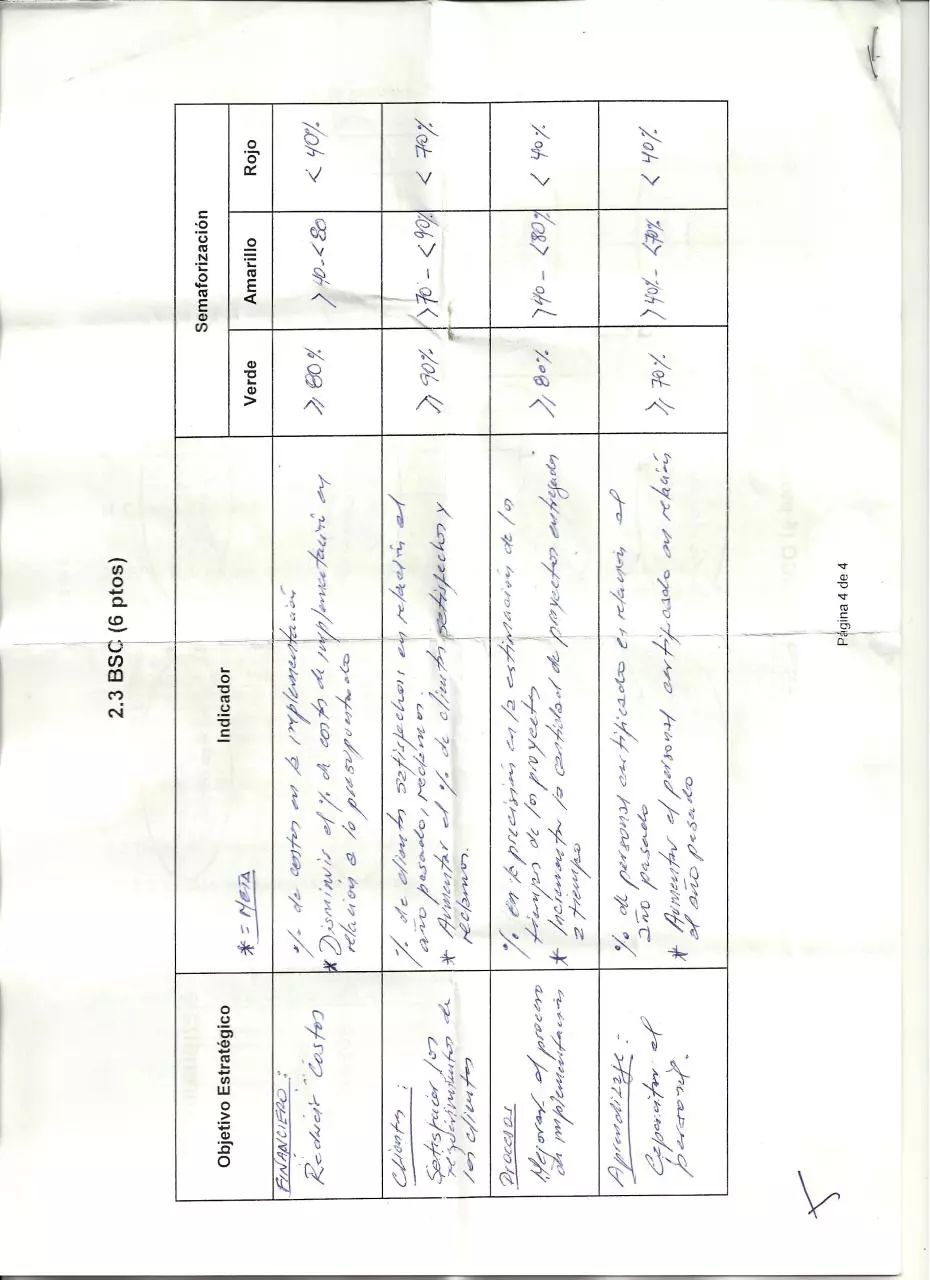 2.3 BSC (6 ptos)
Objetivo Estratégico
Indicador
* = META
Semaforización
Verde
Amarillo
Rojo
FINANCIERO:
Reducir Costos
% de costos en la implementación
* Disminuir el % de costos de implementación en
relación a lo presupuestado
≥ 80%
>40-<80
< 40%
Clientes:
Satisfacer los
requerimientos de
los clientes
% de clientes satisfechos en relación al
año pasado, reclamos.
* Aumentar el % de clientes satisfechos y
reclamos.
≥ 90%
>70 - <90%
< 70%
Procesos
Mejorar el proceso
de implementación
% en la precisión en la estimación de los
tiempos de los proyectos
* Incrementar la cantidad de proyectos entregados
a tiempo
≥ 80%
>40 - <80%
< 40%
Aprendizaje:
Capacitar al
personal.
% de personal certificado en relación al
año pasado
* Aumentar el personal certificado en relación
al año pasado
≥ 70%
>40% - <70%
< 40%
Página 4 de 4